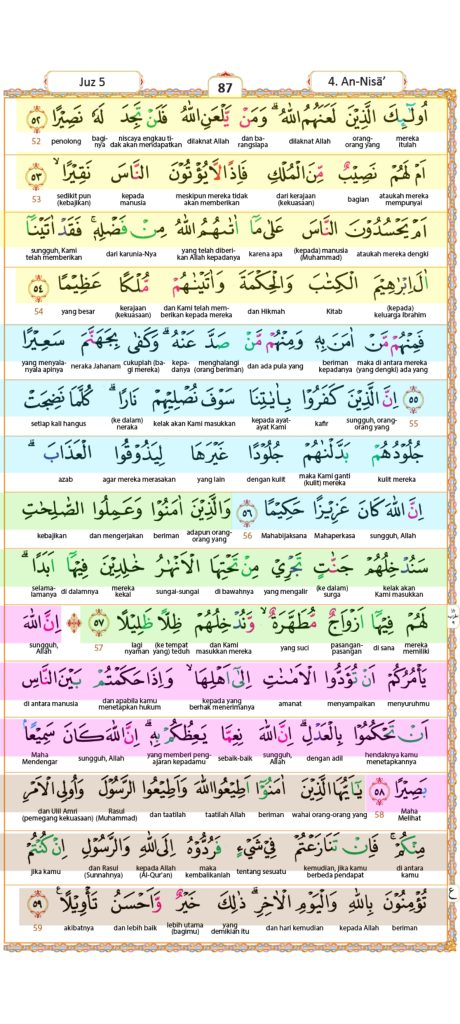 Juz 5
87
4. An-Nisā'
اُولٰۤىِٕكَ الَّذِيْنَ لَعَنَهُمُ اللّٰهُ ۗوَمَنْ يَّلْعَنِ اللّٰهُ فَلَنْ تَجِدَ لَهٗ نَصِيْرًا ۝٥٢
mereka itulah orang-orang yang dilaknat Allah dan barangsiapa dilaknat Allah niscaya engkau tidak akan mendapatkan baginya penolong 52
اَمْ لَهُمْ نَصِيْبٌ مِّنَ الْمُلْكِ فَاِذًا لَّا يُؤْتُوْنَ النَّاسَ نَقِيْرًاۙ ۝٥٣
ataukah mereka mempunyai bagian dari kerajaan (kekuasaan) meskipun mereka tidak akan memberikan kepada manusia sedikit pun (kebajikan) 53
اَمْ يَحْسُدُوْنَ النَّاسَ عَلٰى مَآ اٰتٰىهُمُ اللّٰهُ مِنْ فَضْلِهٖۚ فَقَدْ اٰتَيْنَآ
ataukah mereka dengki (kepada) manusia (Muhammad) karena apa yang telah diberikan Allah kepadanya dari karunia-Nya sungguh, Kami telah memberikan
اٰلَ اِبْرٰهِيْمَ الْكِتٰبَ وَالْحِكْمَةَ وَاٰتَيْنٰهُمْ مُّلْكًا عَظِيْمًا ۝٥٤
(kepada) keluarga Ibrahim Kitab dan Hikmah dan Kami telah memberikan kepada mereka kerajaan (kekuasaan) yang besar 54
فَمِنْهُمْ مَّنْ اٰمَنَ بِهٖ وَمِنْهُمْ مَّنْ صَدَّ عَنْهُ ۗ وَكَفٰى بِجَهَنَّمَ سَعِيْرًا
maka di antara mereka (yang dengki) ada yang beriman kepadanya dan ada pula yang menghalangi (orang beriman) kepadanya cukuplah (bagi mereka) neraka Jahanam yang menyala-nyala apinya
۝٥٥ اِنَّ الَّذِيْنَ كَفَرُوْا بِاٰيٰتِنَا سَوْفَ نُصْلِيْهِمْ نَارًاۗ كُلَّمَا نَضِجَتْ
55 sungguh, orang-orang yang kafir kepada ayat-ayat Kami kelak akan Kami masukkan (ke dalam) neraka setiap kali hangus
جُلُوْدُهُمْ بَدَّلْنٰهُمْ جُلُوْدًا غَيْرَهَا لِيَذُوْقُوا الْعَذَابَۗ
kulit mereka maka Kami ganti (kulit) mereka dengan kulit yang lain agar mereka merasakan azab
اِنَّ اللّٰهَ كَانَ عَزِيْزًا حَكِيْمًا ۝٥٦ وَالَّذِيْنَ اٰمَنُوْا وَعَمِلُوا الصّٰلِحٰتِ
sungguh, Allah Mahaperkasa Mahabijaksana 56 adapun orang-orang yang beriman dan mengerjakan kebajikan
سَنُدْخِلُهُمْ جَنّٰتٍ تَجْرِيْ مِنْ تَحْتِهَا الْاَنْهٰرُ خٰلِدِيْنَ فِيْهَآ اَبَدًاۗ
kelak akan Kami masukkan (ke dalam) surga yang mengalir di bawahnya sungai-sungai mereka kekal di dalamnya selama-lamanya
لَهُمْ فِيْهَآ اَزْوَاجٌ مُّطَهَّرَةٌ ۙ وَّنُدْخِلُهُمْ ظِلًّا ظَلِيْلًا ۝٥٧ ۞ اِنَّ اللّٰهَ
mereka memiliki di sana pasangan-pasangan yang suci dan Kami masukkan mereka (ke tempat yang) teduh lagi nyaman 57 sungguh, Allah
يَأْمُرُكُمْ اَنْ تُؤَدُّوا الْاَمٰنٰتِ اِلٰٓى اَهْلِهَاۙ وَاِذَا حَكَمْتُمْ بَيْنَ النَّاسِ
menyuruhmu menyampaikan amanat kepada yang berhak menerimanya dan apabila kamu menetapkan hukum di antara manusia
اَنْ تَحْكُمُوْا بِالْعَدْلِ ۗ اِنَّ اللّٰهَ نِعِمَّا يَعِظُكُمْ بِهٖ ۗ اِنَّ اللّٰهَ كَانَ سَمِيْعًاۢ
hendaknya kamu menetapkannya dengan adil sungguh, Allah sebaik-baik yang memberi pengajaran kepadamu sungguh, Allah Maha Mendengar
بَصِيْرًا ۝٥٨ يٰٓاَيُّهَا الَّذِيْنَ اٰمَنُوْٓا اَطِيْعُوا اللّٰهَ وَاَطِيْعُوا الرَّسُوْلَ وَاُولِى الْاَمْرِ
Maha Melihat 58 wahai orang-orang yang beriman taatilah Allah dan taatilah Rasul (Muhammad) dan Ulil Amri (pemegang kekuasaan)
مِنْكُمْۚ فَاِنْ تَنَازَعْتُمْ فِيْ شَيْءٍ فَرُدُّوْهُ اِلَى اللّٰهِ وَالرَّسُوْلِ اِنْ كُنْتُمْ
di antara kamu kemudian, jika kamu berbeda pendapat tentang sesuatu maka kembalikanlah kepada Allah (Al-Qur'an) dan Rasul (Sunnahnya) jika kamu
تُؤْمِنُوْنَ بِاللّٰهِ وَالْيَوْمِ الْاٰخِرِۗ ذٰلِكَ خَيْرٌ وَّاَحْسَنُ تَأْوِيْلًا ۝٥٩
beriman kepada Allah dan hari kemudian yang demikian itu lebih utama (bagimu) dan lebih baik akibatnya 59
ع